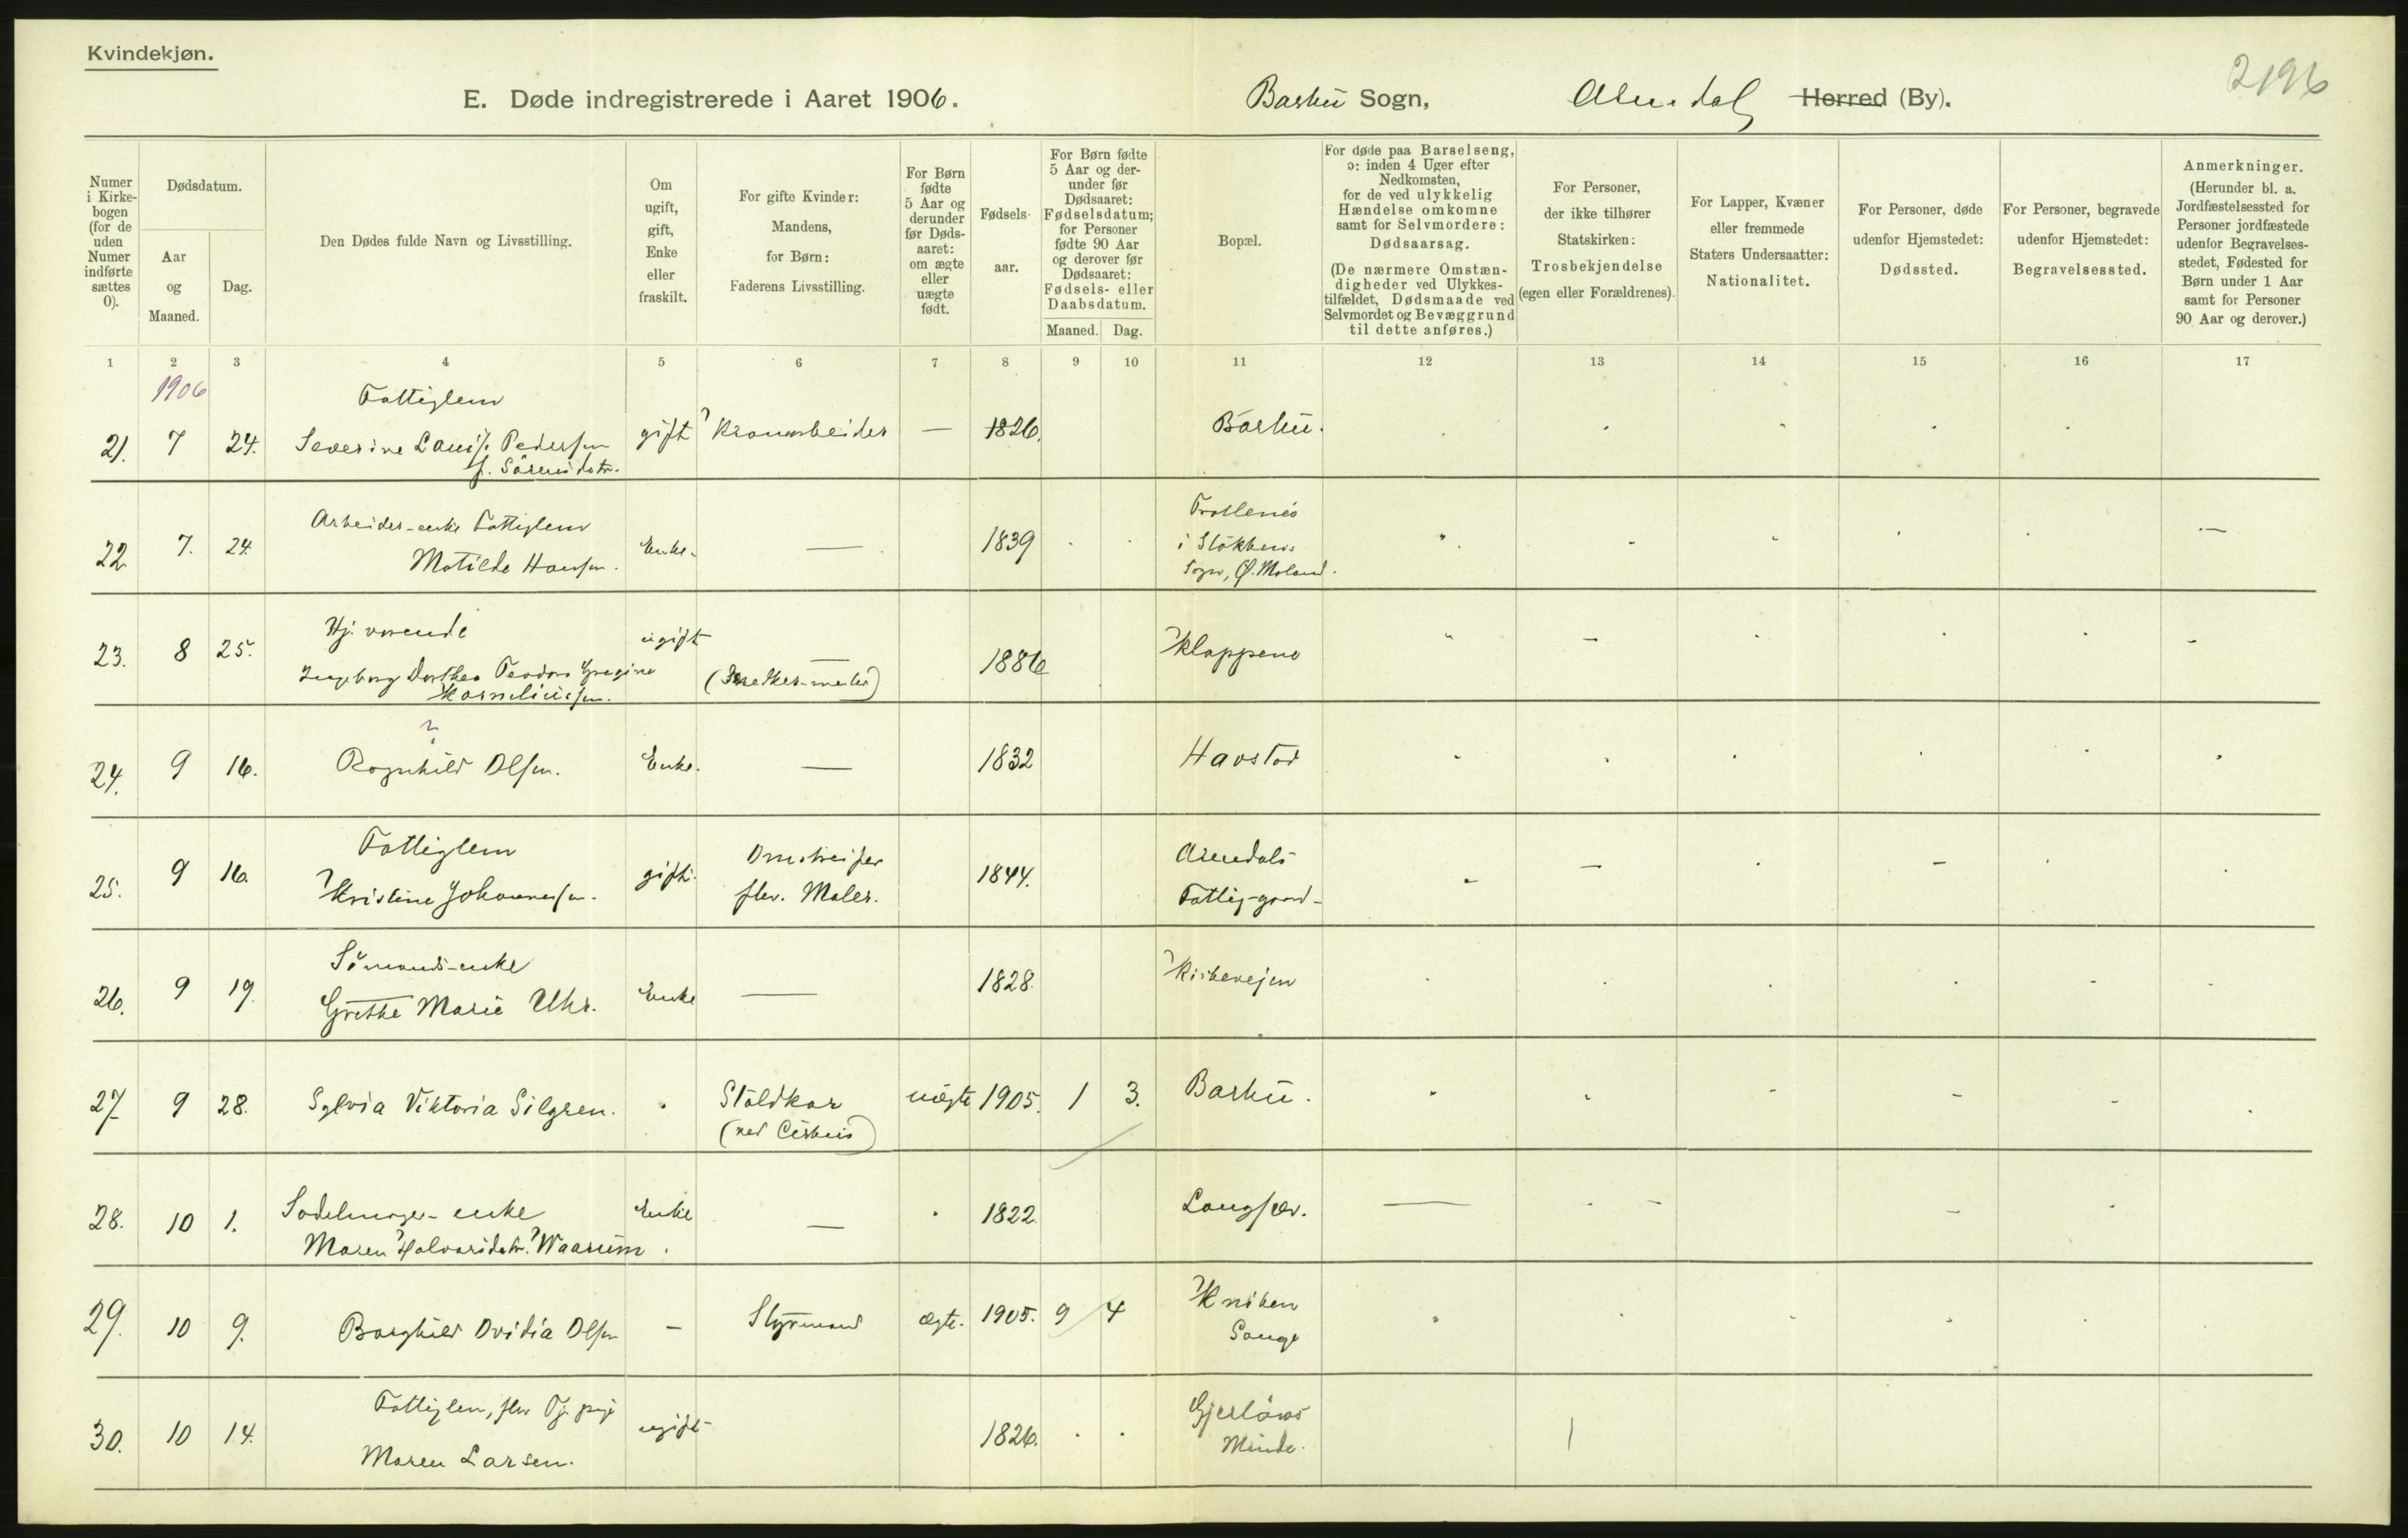 Kvindekjøn.
2196
E. Døde indregistrerede i Aaret 1906. Barbu Sogn, Arendal Herred (By).
Numer i Kirkebogen (for de uden Numer indførte sættes 0).
Dødsdatum.
Aar og Maaned.
Dag.
Den Dødes fulde Navn og Livsstilling.
Om ugift, gift, Enke eller fraskilt.
For gifte Kvinder: Mandens, for Børn: Faderens Livsstilling.
For Børn fødte 5 Aar og derunder før Dødsaaret: om ægte eller uægte født.
Fødselsaar.
For Børn fødte 5 Aar og derunder før Dødsaaret: Fødselsdatum; for Personer fødte 90 Aar og derover før Dødsaaret: Fødsels- eller Daabsdatum.
Maaned. Dag.
Bopæl.
For døde paa Barselseng, ɔ: inden 4 Uger efter Nedkomsten, for de ved ulykkelig Hændelse omkomne samt for Selvmordere: Dødsaarsag.
(De nærmere Omstændigheder ved Ulykkestilfældet, Dødsmaade ved Selvmordet og Bevæggrund til dette anføres.)
For Personer, der ikke tilhører Statskirken: Trosbekjendelse (egen eller Forældrenes).
For Lapper, Kvæner eller fremmede Staters Undersaatter: Nationalitet.
For Personer, døde udenfor Hjemstedet: Dødssted.
For Personer, begravede udenfor Hjemstedet: Begravelsessted.
Anmerkninger.
(Herunder bl. a. Jordfæstelsessted for Personer jordfæstede udenfor Begravelsesstedet, Fødested for Børn under 1 Aar samt for Personer 90 Aar og derover.)
1 2 3 4 5 6 7 8 9 10 11 12 13 14 15 16 17
1906
Fattiglem
21. 7 24. Severine Louise Pedersen gift Kranarbeider — 1826. Barbu.
f. Sörensdatr.
Arbeider-enke Fattiglem
22. 7. 24. Matilde Hansen. Enke. — 1839
i Stokkens
Sogn, Ø. Moland.
Hj. værende
23. 8 25. ugift — 1886 Klappene
Ingeborg Dorthea Teodora
Korneliussen.
?
24. 9 16. Ragnhild Olsen. Enke. — 1832 Havstad
Fattiglem
25. 9 16. Kristine Johannessen. gift. Omstreifer 1844. Arendals
flv. Maler. Fattig-gaard
Sömands-enke
26. 9 19. Grethe Marie Uhr. Enke — 1828. Kirkevejen
27. 9 28. Sylvia Viktoria Silgren. Staldkar uægte 1905. 1 3. Barbu.
(ved Cirkus)
Sadelmager-enke
28. 10 1. Enke — 1822. Langsæv.
Maren Halvorsdatr. Waarum.
29. 10 9. Borghild Ovidia Olsen — Styrmand ægte. 1905. 9 4 Kniben
Songe
Fattiglem, flv Tj. pige
30. 10 14. Maren Larsen. ugift 1826. Gjerløws
Minde.